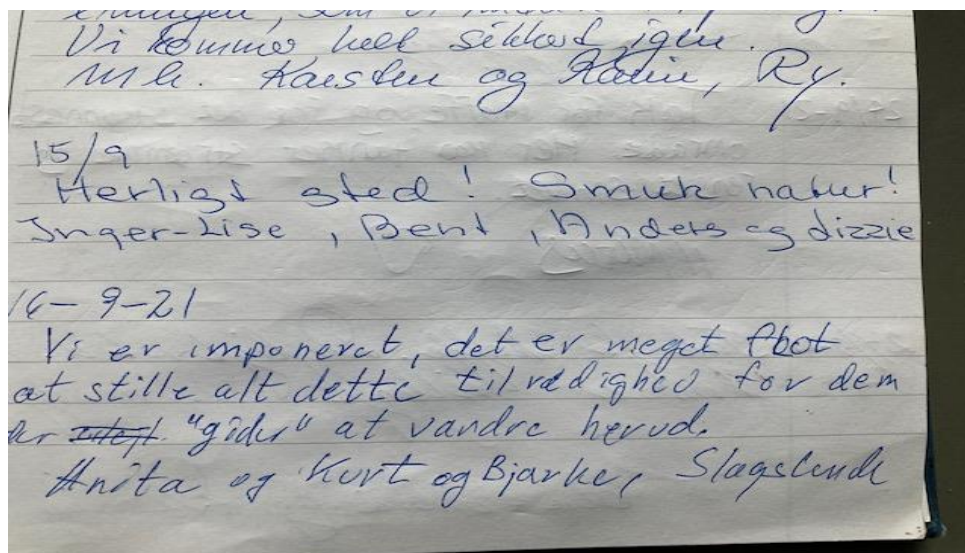 som vi
Vi kommer helt sikkert igen.
M.h. Karsten og Karin, Ry.
15/9
Herligt sted! Smuk natur!
Inger-Lise, Bent, Anders og dizzie
16-9-21
Vi er imponeret, det er meget flot
at stille alt dette til rådighed for dem
der "gider" at vandre herud.
Anita og Kurt og Bjarke, Slagslunde